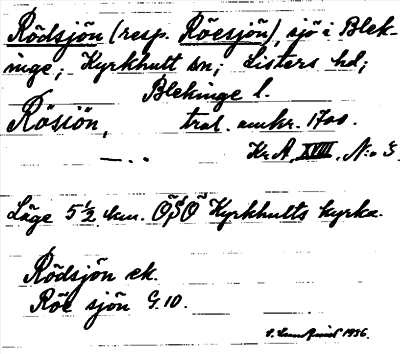 Rödsjön (resp. Röesjön), sjö i Blek-
inge; Kyrkhult sn; Listers hd;
Blekinge l.
Rösiön, tral. omkr. 1700.
— . . KrA, XVIII, N:o 3.
Läge 5½ km. ÖSÖ Kyrkhults kyrka.
Rödsjön ek.
Röe sjön G.10.
1936.